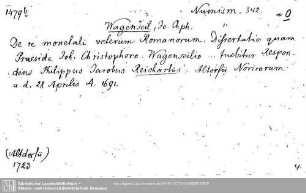 1479b
Numism. 342.
Wagenseil, Jo. Chph.
De re monetali veterum Romanorum. Dissertatio quam
Praeside Joh. Christophoro Wagenseilio tuebitur Respon-
dens Philippus Jacobus Reichartus. Altorfii Noricorum
a. d. 28 Aprilis A. 1691.
(Altdorfii)
1723
4.
Sächsische Landesbibliothek -
Staats- und Universitätsbibliothek Dresden